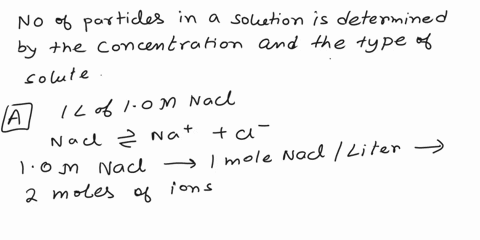 No of particles in a solution is determined
by the concentration and the type of
solute.
A 1 L of 1.0 M Nacl
Nacl ⇌ Na⁺ + cl⁻
1.0 M Nacl → 1 mole Nacl / Liter →
2 moles of ions